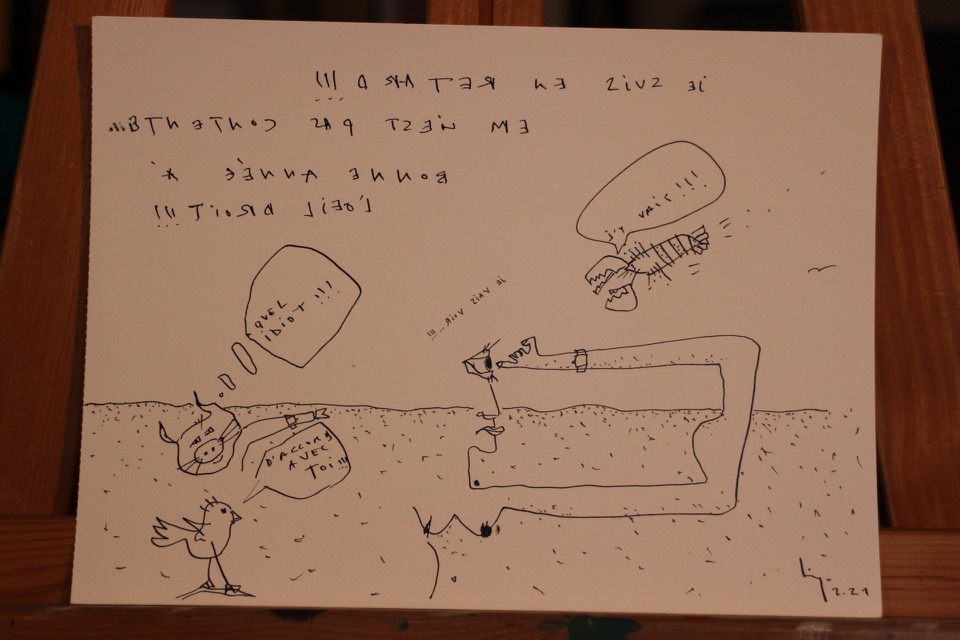 JE SUIS EN RETARD !!!
EM NEST PAS CONTENTE...
BONNE ANNÉE À
L'OEIL DROIT !!!
J'Y VAIS !!!
JE VAIS VOIR...!!!
QUEL
IDIOT !!!
D'ACCORD
AVEC
TOI !!!
2.21